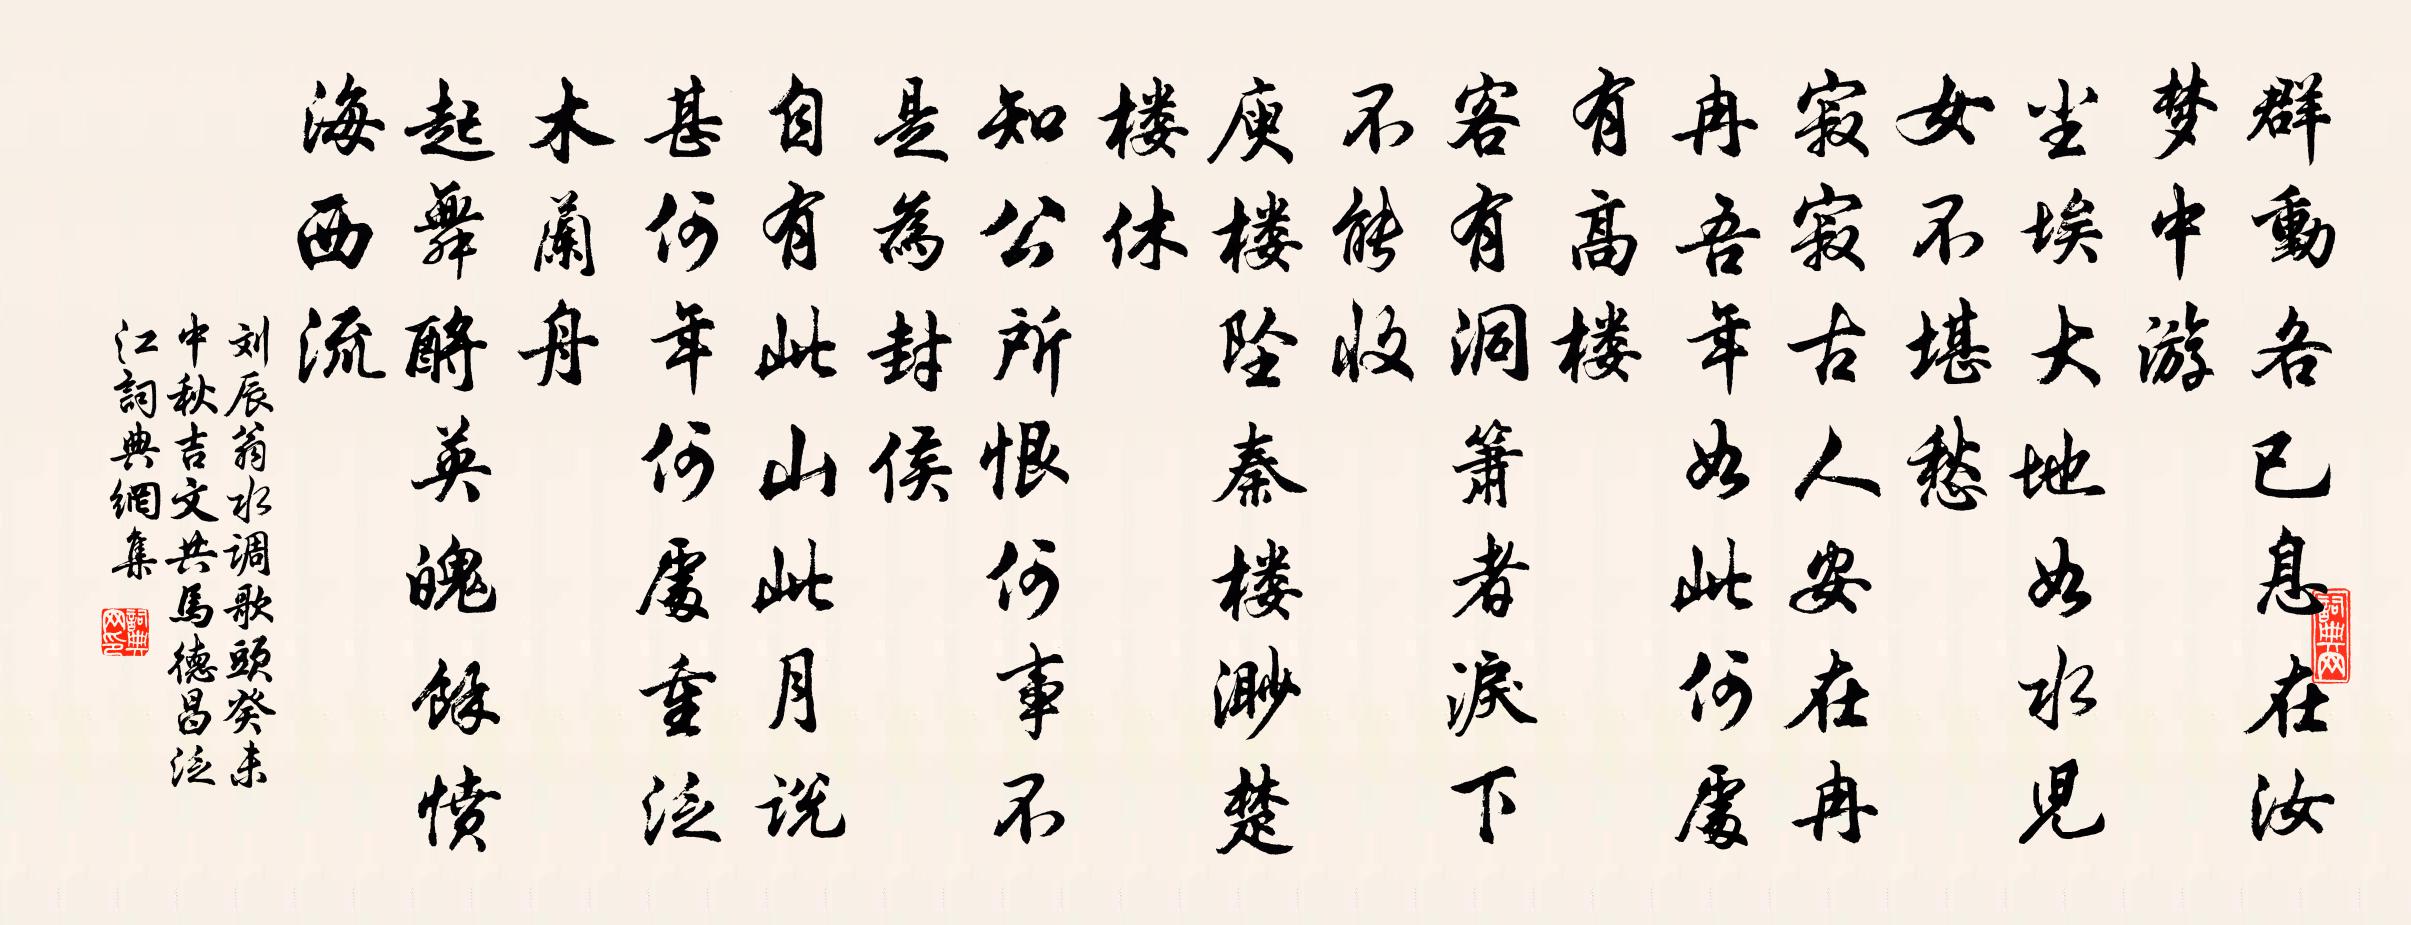 群動各已息在汝
梦中游
尘埃大地如水児
女不堪愁
寂寂古人安在冉
冉吾年如此何處
有高楼
客有洞箫者淚下
不能收
庾楼坠秦楼渺楚
楼休
知公所恨何事不
是為封侯
自有此山此月説
甚何年何處重泛
木蘭舟
起舞酹英魄餘憤
海西流
刘辰翁水调歌頭癸未
中秋吉文共馬德昌泛
江詞典網集
詞典网
詞典网印